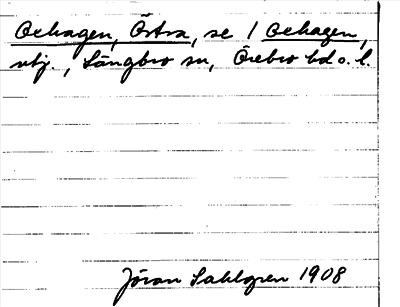 Oxhagen, Östra, se 1 Oxhagen,
utj., Längbro sn, Örebro hd o. l.
Jöran Sahlgren 1908